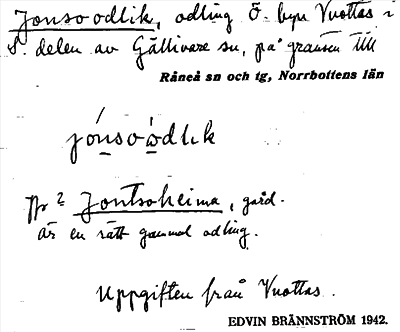 Jonsoodlik, odling Ö. byn Vuottas i
S. delen av Gällivare sn, på gränsen till
Råneå sn och tg, Norrbottens län
jónsoòdlık
Jfr ? Jontsoheima, gård.
Är en rätt gammal odling.
Uppgiften från Vuottas.
EDVIN BRÄNNSTRÖM 1942.